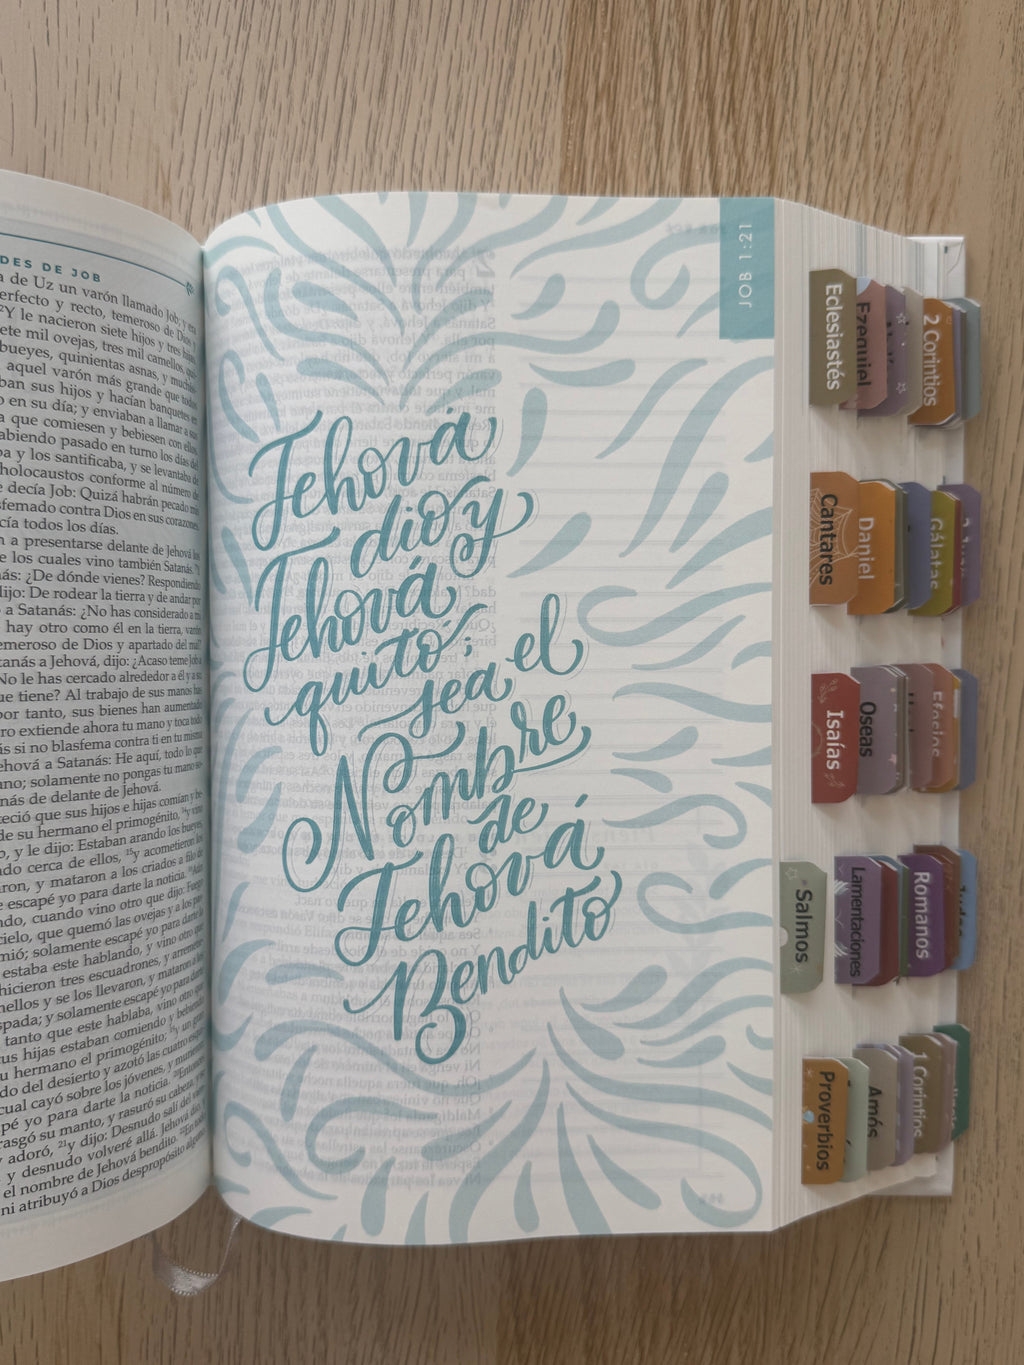 DES DE JOB
de Uz un varón llamado Job; y era
perfecto y recto, temeroso de Dios y
²Y le nacieron siete hijos y tres hijas.
siete mil ovejas, tres mil camellos, qui-
bueyes, quinientas asnas, y muchísi
aquel varón más grande que todos
ban sus hijos y hacían banquetes en
o en su día; y enviaban a llamar a sus
a que comiesen y bebiesen con ellos.
abiendo pasado en turno los días del
ba y los santificaba, y se levantaba de
holocaustos conforme al número de
e decía Job: Quizá habrán pecado mis
sfemado contra Dios en sus corazones.
cía todos los días.
n a presentarse delante de Jehová los
e los cuales vino también Satanás.
nás: ¿De dónde vienes? Respondiendo
dijo: De rodear la tierra y de andar por
a Satanás: ¿No has considerado a mi
hay otro como él en la tierra, varón
emeroso de Dios y apartado del mal?
tanás a Jehová, dijo: ¿Acaso teme Job a
No le has cercado alrededor a él y a su
ue tiene? Al trabajo de sus manos has
por tanto, sus bienes han aumentado
ro extiende ahora tu mano y toca todo
ás si no blasfema contra ti en tu misma
ehová a Satanás: He aquí, todo lo que
ano; solamente no pongas tu mano so-
nás de delante de Jehová.
teció que sus hijos e hijas comían y be-
de su hermano el primogénito, ¹⁴y vino
o, y le dijo: Estaban arando los bueyes,
ndo cerca de ellos, ¹⁵y acometieron los
aron, y mataron a los criados a filo de
e escapé yo para darte la noticia. ¹⁶Aún
ndo, cuando vino otro que dijo: Fuego
cielo, que quemó las ovejas y a los pas-
mió; solamente escapé yo para darte
estaba este hablando, y vino otro que
hicieron tres escuadrones, y arremetie-
mellos y se los llevaron, y mataron a los
spada; y solamente escapé yo para darte
tanto que este hablaba, vino otro que
us hijas estaban comiendo y bebiendo
u hermano el primogénito; ¹⁹y un gran
do del desierto y azotó las cuatro esqui
cual cayó sobre los jóvenes, y murieron;
pé yo para darte la noticia. ²⁰Entonces
rasgó su manto, y rasuró su cabeza, y se
y adoró, ²¹y dijo: Desnudo salí del vientre
y desnudo volveré allá. Jehová dio, y
el nombre de Jehová bendito. ²²En todo
ni atribuyó a Dios despropósito alguno.
JOB 1:21
Jehová
dio, y
Jehová
quitó;
sea el
Nombre
de
Jehová
Bendito
Eclesiastés
Ezequiel
2 Corintios
Cantares
Daniel
Gálatas
Isaías
Oseas
Efesios
Salmos
Lamentaciones
Romanos
Judas
Proverbios
Amós
1 Corintios